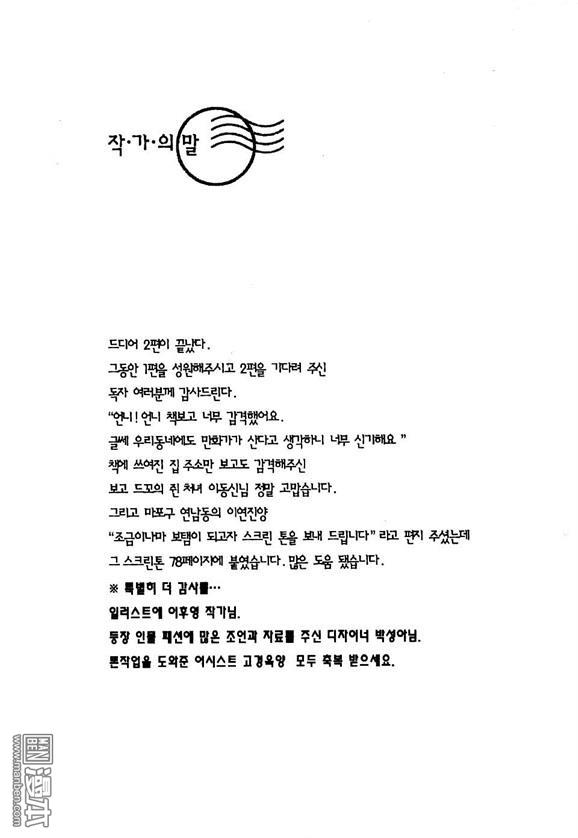 작·가·의 말
드디어 2편이 끝났다.
그동안 1편을 성원해주시고 2편을 기다려 주신
독자 여러분께 감사드린다.
“언니! 언니 책보고 너무 감격했어요.
글쎄 우리동네에도 만화가가 산다고 생각하니 너무 신기해요 ”
책에 쓰여진 집 주소만 보고도 감격해주신
보고 드꼬의 쥔 처녀 이동신님 정말 고맙습니다.
그리고 마포구 연남동의 이연진양
“조금이나마 보탬이 되고자 스크린 톤을 보내 드립니다” 라고 편지 주셨는데
그 스크린톤 78페이지에 붙였습니다. 많은 도움 됐습니다.
※ 특별히 더 감사를…
일러스트에 이후영 작가님.
등장 인물 패션에 많은 조언과 자료를 주신 디자이너 박성아님.
톤작업을 도와준 어시스트 고경옥양 모두 축복 받으세요.
MAN
BEN
漫本
www.manben.com